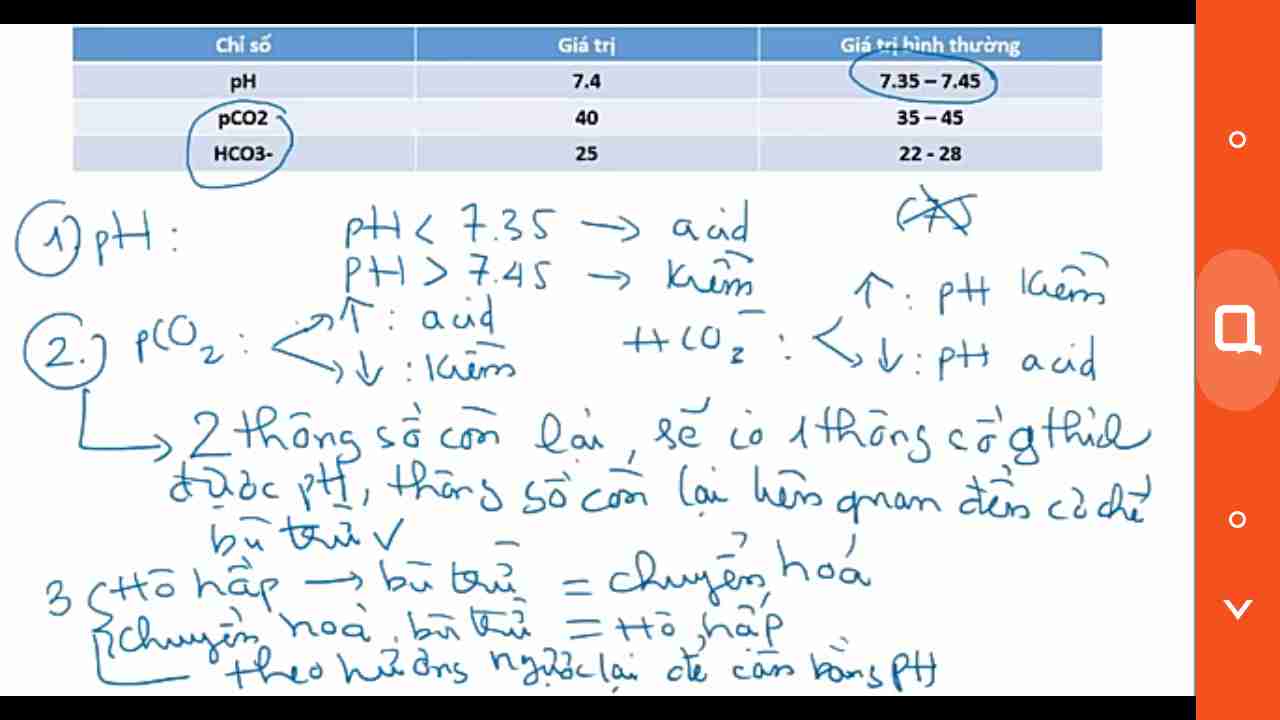 Chỉ số Giá trị Giá trị bình thường
pH 7.4 7.35 – 7.45
pCO2 40 35 – 45
HCO3- 25 22 - 28
1) pH : pH < 7.35 → acid (7)
pH > 7.45 → kiềm
2.) pCO2 : ↑ : acid HCO3- : ↑ : pH kiềm
↓ : kiềm ↓ : pH acid
2 thông số còn lại, sẽ có 1 thông số gthích
được pH, thông số còn lại liên quan đến cơ chế
bù trừ ✓
3 Hô hấp → bù trừ = chuyển hoá
chuyển hoá, bù trừ = Hô hấp
theo hướng ngược lại để cân bằng pH